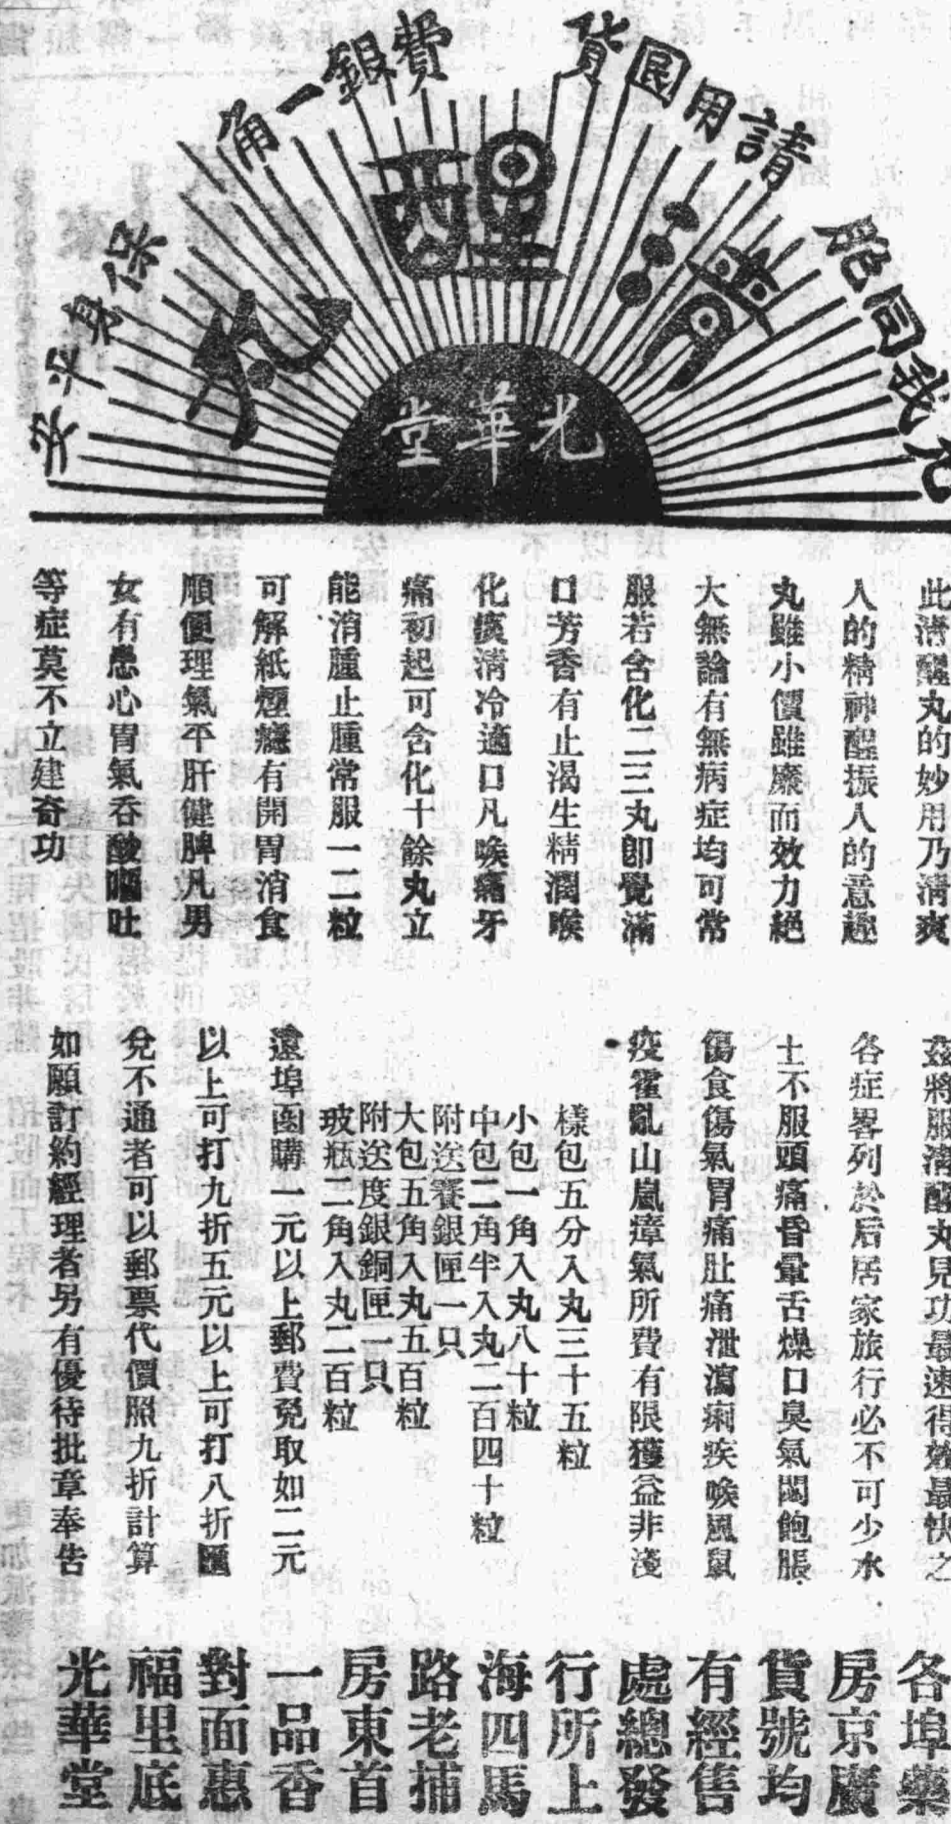 凡我同胞
請用國貨
費銀一角
保身平安
清醒丸
光華堂
此清醒丸的妙用乃清爽
人的精神醒振人的意趣
丸雖小價雖廉而效力絕
大無論有無病症均可常
服若含化二三丸卽覺滿
口芳香有止渴生精潤喉
化痰淸冷適口凡喉痛牙
痛初起可含化十餘丸立
能消腫止腫常服一二粒
可解紙煙癮有開胃消食
順便理氣平肝健脾凡男
女有患心胃氣吞酸嘔吐
等症莫不立建奇功
茲將服清醒丸見功最速得效最快之
各症畧列於后居家旅行必不可少水
土不服頭痛昏暈舌燥口臭氣悶飽脹
傷食傷氣胃痛肚痛泄瀉痢疾喉風鼠
疫霍亂山嵐瘴氣所費有限獲益非淺
樣包五分入丸三十五粒
小包一角入丸八十粒
中包二角半入丸二百四十粒
附送賽銀匣一只
大包五角入丸五百粒
附送度銀銅匣一只
玻瓶二角入丸二百粒
遠埠函購一元以上郵費免取如二元
以上可打九折五元以上可打八折匯
兌不通者可以郵票代價照九折計算
如願訂約經理者另有優待批章奉告
各埠藥
房京廣
貨號均
有經售
處總發
行所上
海四馬
路老捕
房東首
一品香
對面惠
福里底
光華堂